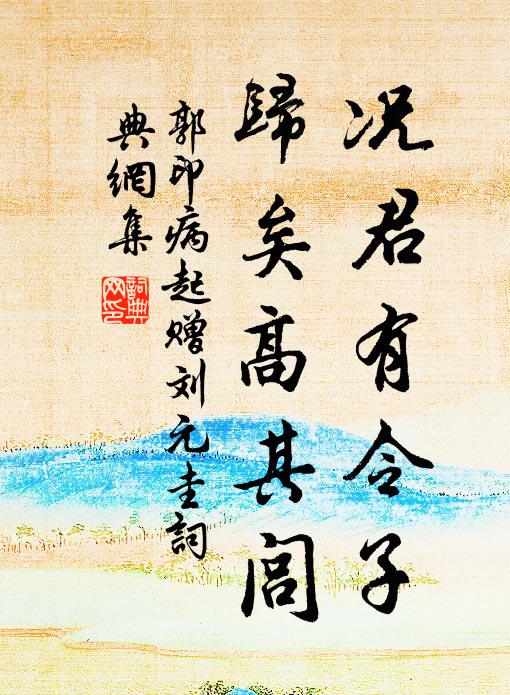 况君有令子
歸矣高其閭
郭印病起赠刘元圭詞
典網集
詞典网印